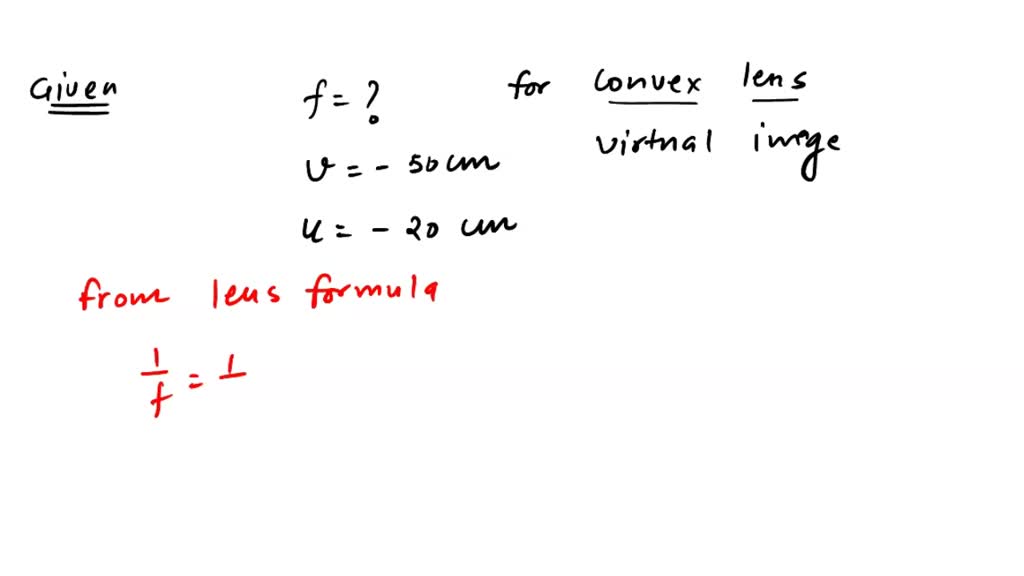 Given f = ? for convex lens
virtual image
v = - 50 cm
u = - 20 cm
from lens formula
1/f = 1